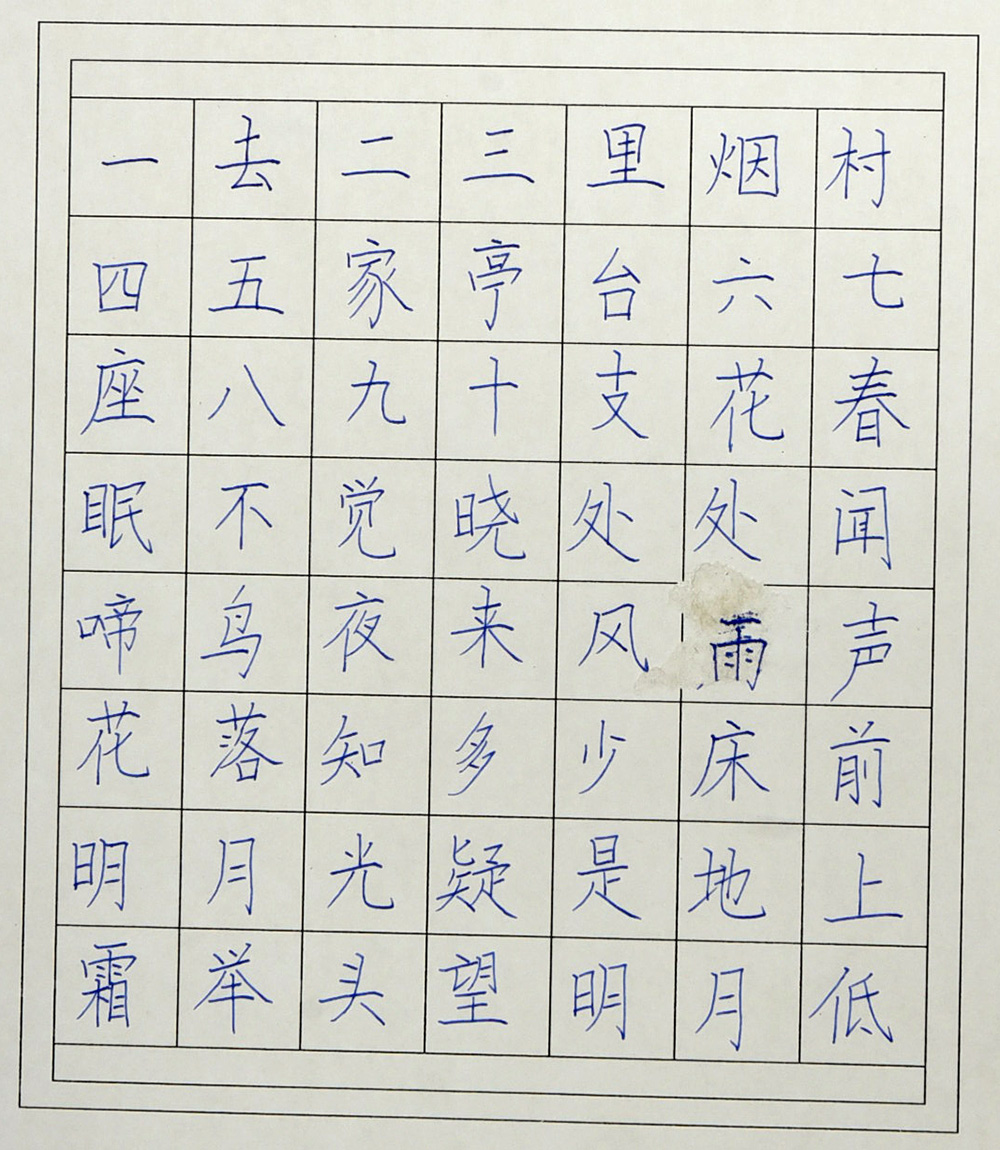 一去二三里烟村
四五家亭台六七
座八九十支花春
眠不觉晓处处闻
啼鸟夜来风雨声
花落知多少床前
明月光疑是地上
霜举头望明月低